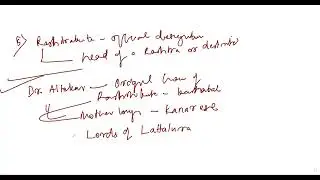 5) Rashtrakuta - official designation
head of a Rashtra or district
Dr. Altekar - Original home of
Rashtrakuta -
Mother tongue - Kanarese
Lords of Lattalura